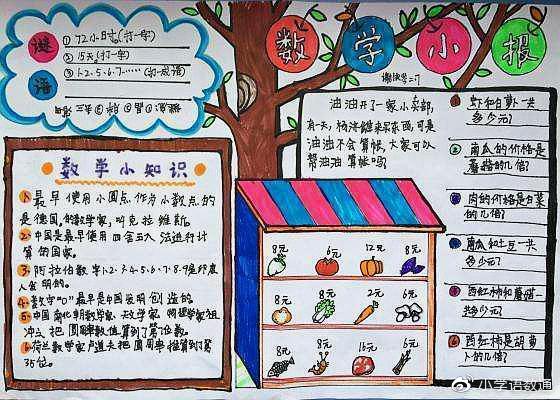 数学小报
谜语
①72小时。(打一字)
②15天。(打一字)
③1.2.5.6.7……(打一成语)
数学小知识
1.最早使用小圆点作为小数点的
是德国的数学家,叫克拉维斯。
2.中国是最早使用四舍五入法进行计
算的国家。
3.阿拉伯数字1.2.3.4.5.6.7.8.9是印度
人发明的。
4.数学"0"最早是中国发明创造的。
5.中国南北朝数学家、天文学家、物理学家祖
冲之把圆周率值算到了第七位数。
6.荷兰数学家卢道夫把圆周率推算到了第
35位。
油油开了一家小卖部,
有一天,杨洋谁来买东西,可是
油油不会算帐,大家可以
帮油油算帐吗?
8元
6元
12元
8元
8元
2元
2元
6元
8元
16元
6元
虾和白萝卜一共
多少元?
南瓜的价格是
蘑菇的几倍?
肉的价格是白菜
的几倍?
南瓜和土豆一共
多少元?
西红柿和蘑菇一
共多少元?
西红柿是胡萝
卜的几倍?
小学语教通